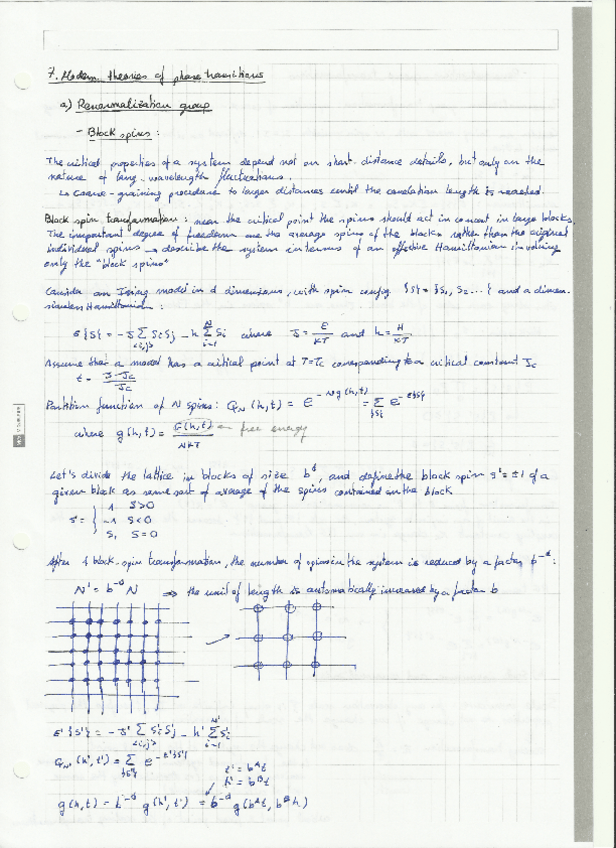 7. Modern theories of phase transitions
a) Renormalization group
- Block spins:
The critical properties of a system depend not on short-distance details, but only on the
nature of long-wavelength fluctuations.
↳ Coarse-graining procedure to larger distances until the correlation length is reached.
Block spin transformation: near the critical point the spins should act in concert in large blocks.
The important degree of freedom are the average spins of the blocks rather than the original
individual spins → describe the system in terms of an effective Hamiltonian involving
only the "block spins"
Consider an Ising model in d dimensions, with spin config {S} = {S₁, S₂ ...} and a dimen-
sionless Hamiltonian:
ε{S} = -J Σ SᵢSⱼ - h Σ Sᵢ where J = E/KT and h = H/KT
<i,j> i=1 N
Assume that a model has a critical point at T=Tc corresponding to a critical constant Jc
t = J-Jc/Jc
Partition function of N spins: Q_N (h,t) = e^{-Ng(h,t)} = Σ_{S} e^{-ε{S}}
where g(h,t) = G(h,t)/NKT free energy
Let's divide the lattice in blocks of size b^d, and define the block spin s' = ±1 of a
given block as some sort of average of the spins contained on the block
s' = { 1 S>0
-1 S<0
S₁ S=0
After 1 block-spin transformation, the number of spins in the system is reduced by a factor b^{-d}:
N' = b^{-d} N ⇒ the unit of length is automatically increased by a factor b
ε'{S'} = -J' Σ S'ᵢS'ⱼ - h' Σ S'ᵢ
<i,j> i=1 N'
Q_N' (h',t') = Σ_{S'} e^{-ε'{S'}}
t' = b^A t
h' = b^B h
g(h,t) = b^{-d} g(h',t') = b^{-d} g(b^A t, b^B h)